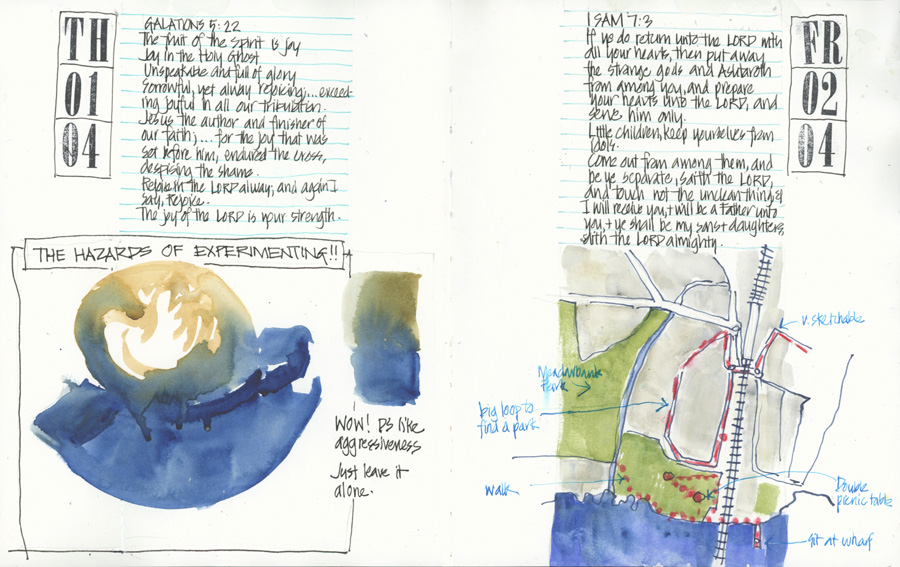 TH
01
04
GALATIONS 5:22
The fruit of the Spirit is joy
Joy in the Holy Ghost
Unspeakable and full of glory
Sorrowful, yet alway rejoicing;... exceed-
ing joyful in all our tribulation.
Jesus the author and finisher of
our faith;... for the joy that was
set before him, endured the cross,
despising the shame.
Rejoice in the LORD alway, and again I
say, Rejoice.
The joy of the LORD is your strength.
THE HAZARDS OF EXPERIMENTING!!
WOW! PS like
aggressiveness
Just leave it
alone.
1 SAM 7:3
If ye do return unto the LORD with
all your hearts, then put away
the strange gods and Ashtaroth
from among you, and prepare
your hearts unto the LORD, and
serve him only.
Little children, keep yourselves from
idols.
Come out from among them, and
be ye separate, saith the LORD,
and touch not the unclean thing, &
I will receive you, + will be a Father unto
you, + ye shall be my sons + daughters,
saith the LORD almighty.
FR
02
04
v. sketchable
Meadowbank
Park
big loop to
find a park
walk
Double
picnic table
sit at wharf